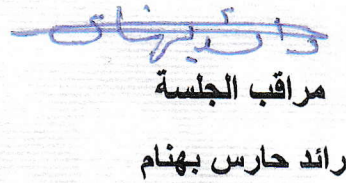 مراقب الجلسة
رائد حارس بهنام